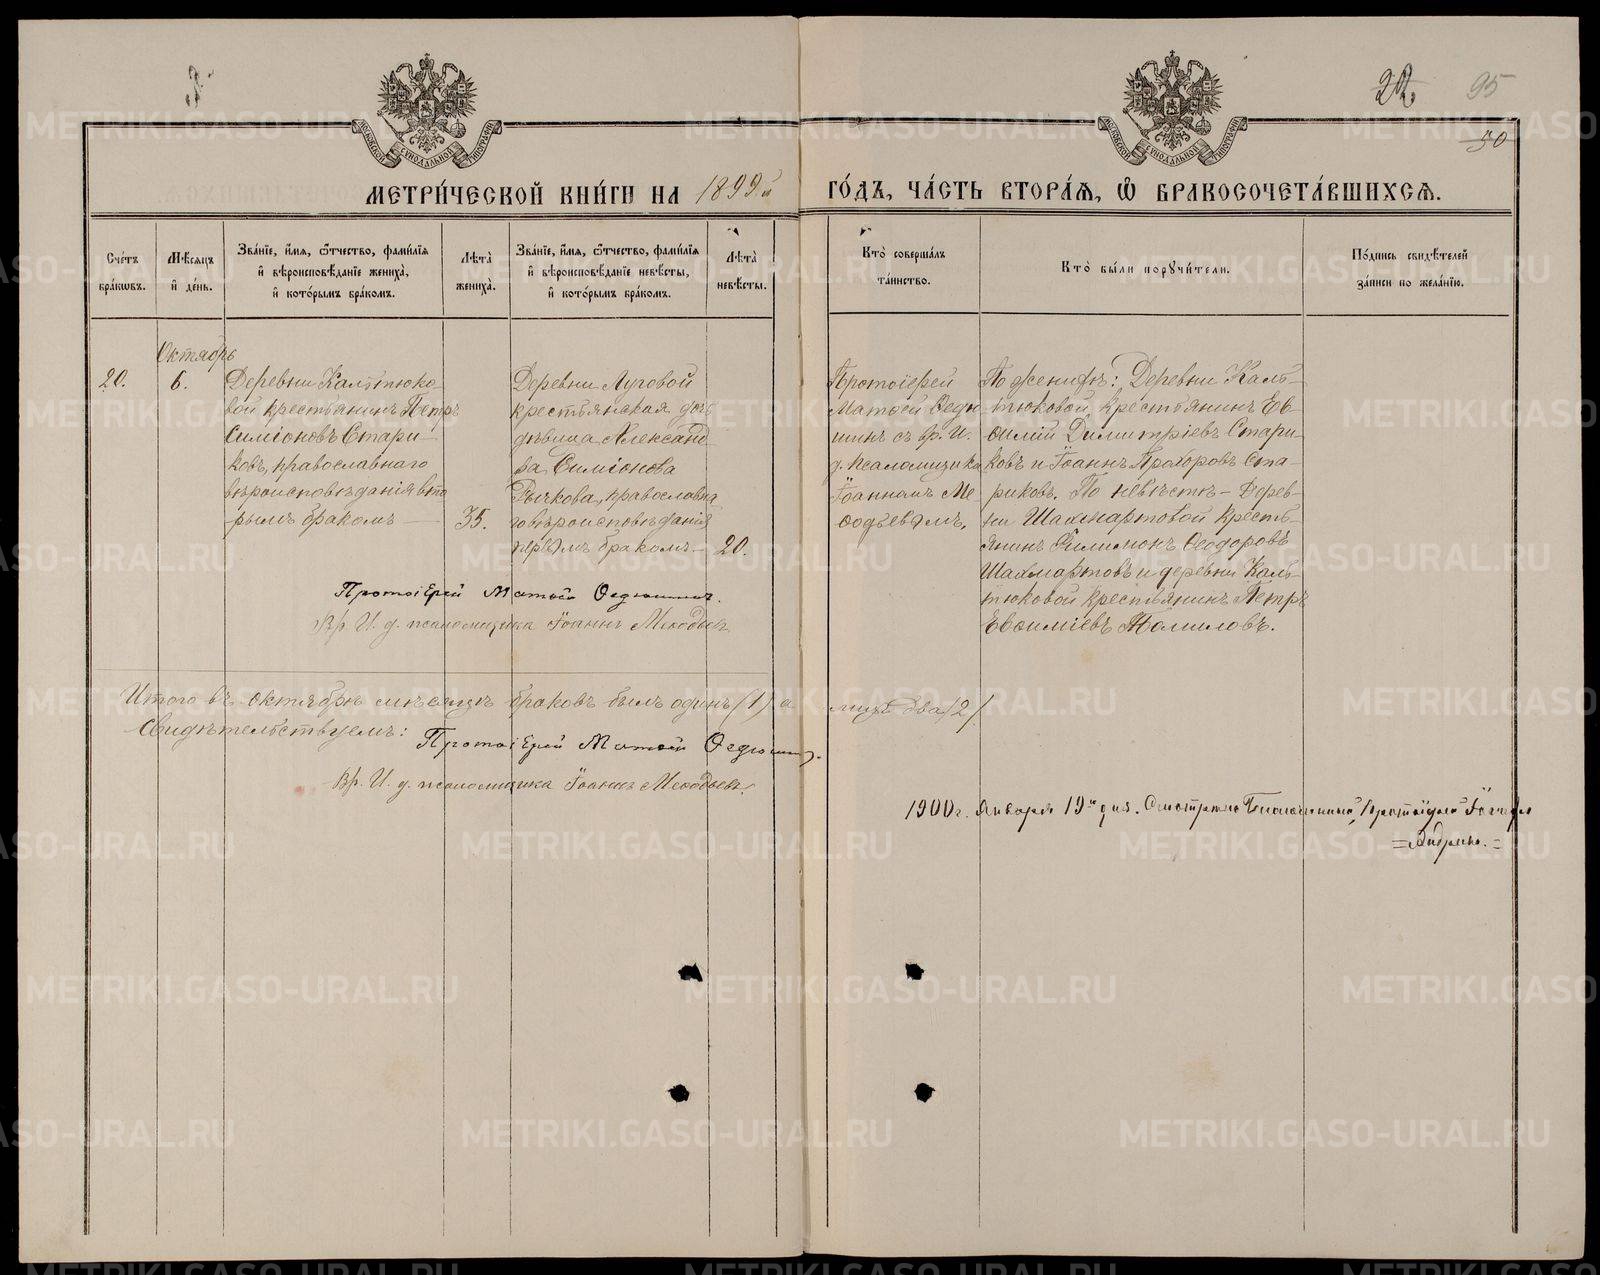 22 95
50
МЕТРИ́ЧЕСКОЙ КНИ́ГИ НА 1899й ГО́ДЪ, ЧА́СТЬ ВТОРА́Я, Ѡ БРАКОСОЧЕТА́ВШИХСЯ.
Сче́тъ бра́кѡвъ.
Мѣ́сяцъ и҆ де́нь.
Зва́нїе, и҆́мя, ѻ҆́тчество, фами́лїя и҆ вѣроисповѣ́данїе жениха̀, и҆ кото́рымъ бра́комъ.
Лѣ́та жениха̀.
Зва́нїе, и҆́мя, ѻ҆́тчество, фами́лїя и҆ вѣроисповѣ́данїе невѣ́сты, и҆ кото́рымъ бра́комъ.
Лѣ́та невѣ́сты.
Кто̀ соверша́лъ та́инство.
Кто̀ бы́ли порꙋчи́тели.
По́дпись свидѣ́телей за́писи по жела́нїю.
20.
Октябрь
6.
Деревни Кальтюко-
вой крестьянинъ Петръ
Симіоновъ Стари-
ковъ, православнаго
вѣроисповѣданія вто
рымъ бракомъ —
35.
Деревни Луговой
крестьянская дочь
дѣвица Александ-
ра Симіонова
Рычкова, православна
го вѣроисповѣданія
первымъ бракомъ —
20.
Протоіерей
Матѳей Ѳедю
шинъ съ вр. И.
д. псаломщика
Іоанномъ Ме
ѳодьевымъ.
По женихѣ: Деревни Каль-
тюковой, крестьянинъ Ев-
ѳимій Димитріевъ Стари-
ковъ и Іоаннъ Прохоровъ Ста-
риковъ. По невѣстѣ — Дерев-
ни Шахмартовой Кресть-
янинъ Филимонъ Ѳеодоровъ
Шахмартовъ и деревни Каль-
тюковой крестьянинъ Петръ
Евѳиміевъ Томиловъ.
Протоіерей Матѳей Ѳедюшинъ.
Вр. И. д. псаломщика Іоаннъ Меѳодьевъ
Итого въ октябрѣ мѣсяцѣ браковъ былъ одинъ (1) а лицъ два /2/
Свидѣтельствуемъ: Протоіерей Матѳей Ѳедюшинъ.
Вр. И. д. псаломщика Іоаннъ Меѳодьевъ.
1900 г. Января 19го дня. Смотрѣлъ Благочинный, Протоіерей
METRIKI.GASO-URAL.RU